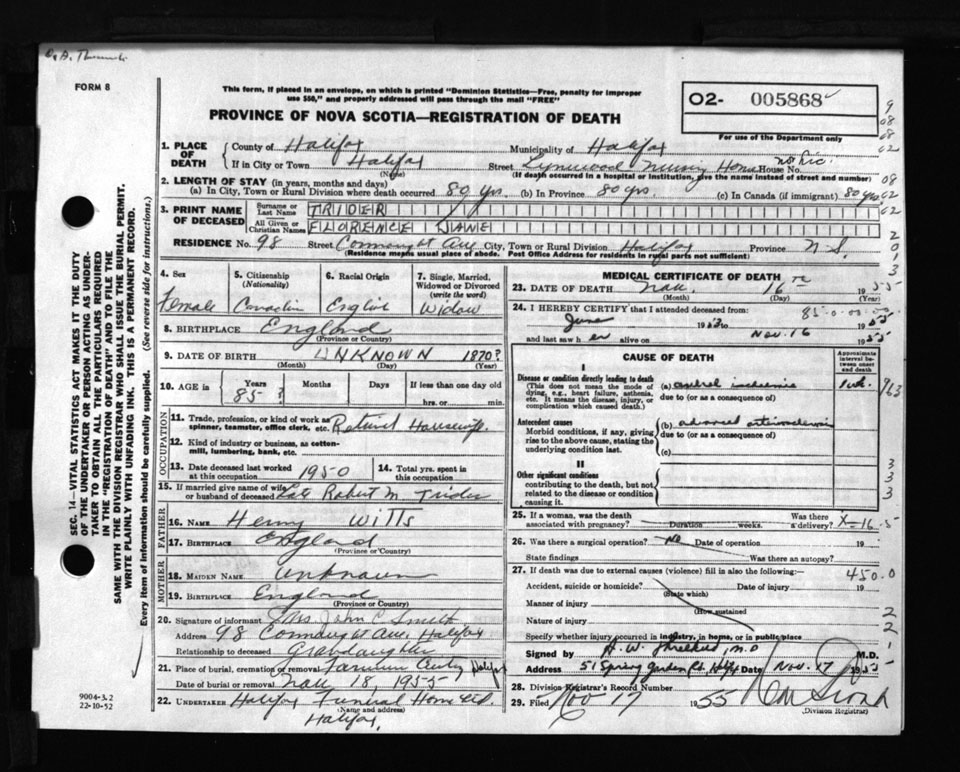 FORM 8
This form, if placed in an envelope, on which is printed "Dominion Statistics—Free, penalty for improper
use $50," and properly addressed will pass through the mail "FREE"
PROVINCE OF NOVA SCOTIA—REGISTRATION OF DEATH
O2- 005868
For use of the Department only
1. PLACE OF DEATH
County of Halifax Municipality of Halifax
If in City or Town Halifax Street Nursing Home House No.
(Name) (If death occurred in a hospital or institution, give the name instead of street and number)
2. LENGTH OF STAY (in years, months and days)
(a) In City, Town or Rural Division where death occurred 80 yrs. (b) In Province 80 yrs. (c) In Canada (if immigrant) 80 yrs
3. PRINT NAME OF DECEASED
Surname or Last Name TRIDER
All Given or Christian Names FLORENCE JANE
RESIDENCE No. 98 Street Connaught Ave City, Town or Rural Division Halifax Province N.S.
(Residence means usual place of abode. Post Office Address for residents in rural parts not sufficient)
4. Sex Female
5. Citizenship (Nationality) Canadian
6. Racial Origin English
7. Single, Married, Widowed or Divorced (write the word) Widow
8. BIRTHPLACE England
(Province or Country)
9. DATE OF BIRTH UNKNOWN 1870?
(Month) (Day) (Year)
10. AGE in Years 85? Months Days If less than one day old
hrs. or min.
OCCUPATION
11. Trade, profession, or kind of work as spinner, teamster, office clerk, etc. Retired Housewife
12. Kind of industry or business, as cotton-mill, lumbering, bank, etc.
13. Date deceased last worked at this occupation 1950
14. Total yrs. spent in this occupation
15. If married give name of wife or husband of deceased Late Robert M. Trider
FATHER
16. NAME Henry Witts
17. BIRTHPLACE England
(Province or Country)
MOTHER
18. MAIDEN NAME unknown
19. BIRTHPLACE England
(Province or Country)
20. Signature of informant Mrs John C Smith
Address 98 Connaught Ave, Halifax
Relationship to deceased Grandaughter
21. Place of burial, cremation or removal Halifax
Date of burial or removal Nov 18, 1955
22. UNDERTAKER Halifax Funeral Home Ltd.
(Name and address)
Halifax,
MEDICAL CERTIFICATE OF DEATH
23. DATE OF DEATH Nov. 16th 1955
(Month) (Day) (Year)
24. I HEREBY CERTIFY that I attended deceased from:
June 1953 to 1955
and last saw her alive on Nov. 16 1955
CAUSE OF DEATH
Approximate interval between onset and death
I
Disease or condition directly leading to death
(This does not mean the mode of dying, e.g., heart failure, asthenia, etc. It means the disease, injury, or complication which caused death.)
(a) cerebral ischemia 1 wk.
due to (or as a consequence of)
Antecedent causes
Morbid conditions, if any, giving rise to the above cause, stating the underlying condition last.
(b) advanced arteriosclerosis
due to (or as a consequence of)
(c)
II
Other significant conditions
contributing to the death, but not related to the disease or condition causing it.
25. If a woman, was the death associated with pregnancy? Duration weeks. Was there a delivery?
26. Was there a surgical operation? No Date of operation 19
State findings Was there an autopsy?
27. If death was due to external causes (violence) fill in also the following:—
Accident, suicide or homicide? Date of injury 19
(State which)
Manner of injury
(How sustained)
Nature of injury
Specify whether injury occurred in industry, in home, or in public place
Signed by M.D. M.D.
Address 51 Spring Garden Rd. Hfx Date Nov. 17 1955
28. Division Registrar's Record Number
29. Filed Nov 17 1955
(Division Registrar)
SEC. 14—VITAL STATISTICS ACT MAKES IT THE DUTY
OF THE UNDERTAKER OR PERSON ACTING AS UNDER-
TAKER TO OBTAIN ALL THE PARTICULARS REQUIRED
IN THE "REGISTRATION OF DEATH" AND TO FILE THE
SAME WITH THE DIVISION REGISTRAR WHO SHALL ISSUE THE BURIAL PERMIT.
WRITE PLAINLY WITH UNFADING INK. THIS IS A PERMANENT RECORD.
Every item of information should be carefully supplied. (See reverse side for instructions.)
9004-3.2
22-10-52